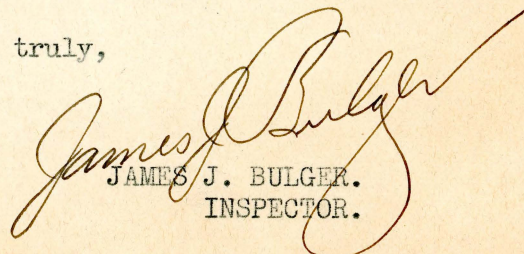 truly,
James J Bulger
JAMES J. BULGER.
INSPECTOR.